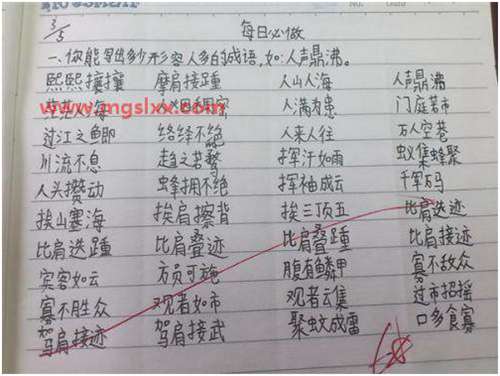 3/5 每日必做
一、你能写出多少形容人多的成语,如:人声鼎沸。
熙熙攘攘 摩肩接踵 人山人海 人声鼎沸
www.mgslxx.com 人满为患 门庭若市
过江之鲫 络绎不绝 人来人往 万人空巷
川流不息 趋之若鹜 挥汗如雨 蚁集蜂聚
人头攒动 蜂拥不绝 挥袖成云 千军万马
挨山塞海 挨肩擦背 挨三顶五 比肩迭迹
比肩迭踵 比肩叠迹 比肩叠踵 比肩接迹
宾客如云 方员可施 腹有鳞甲 寡不敌众
寡不胜众 观者如市 观者云集 过市招摇
驾肩接迹 驾肩接武 聚蚊成雷 口多食寡